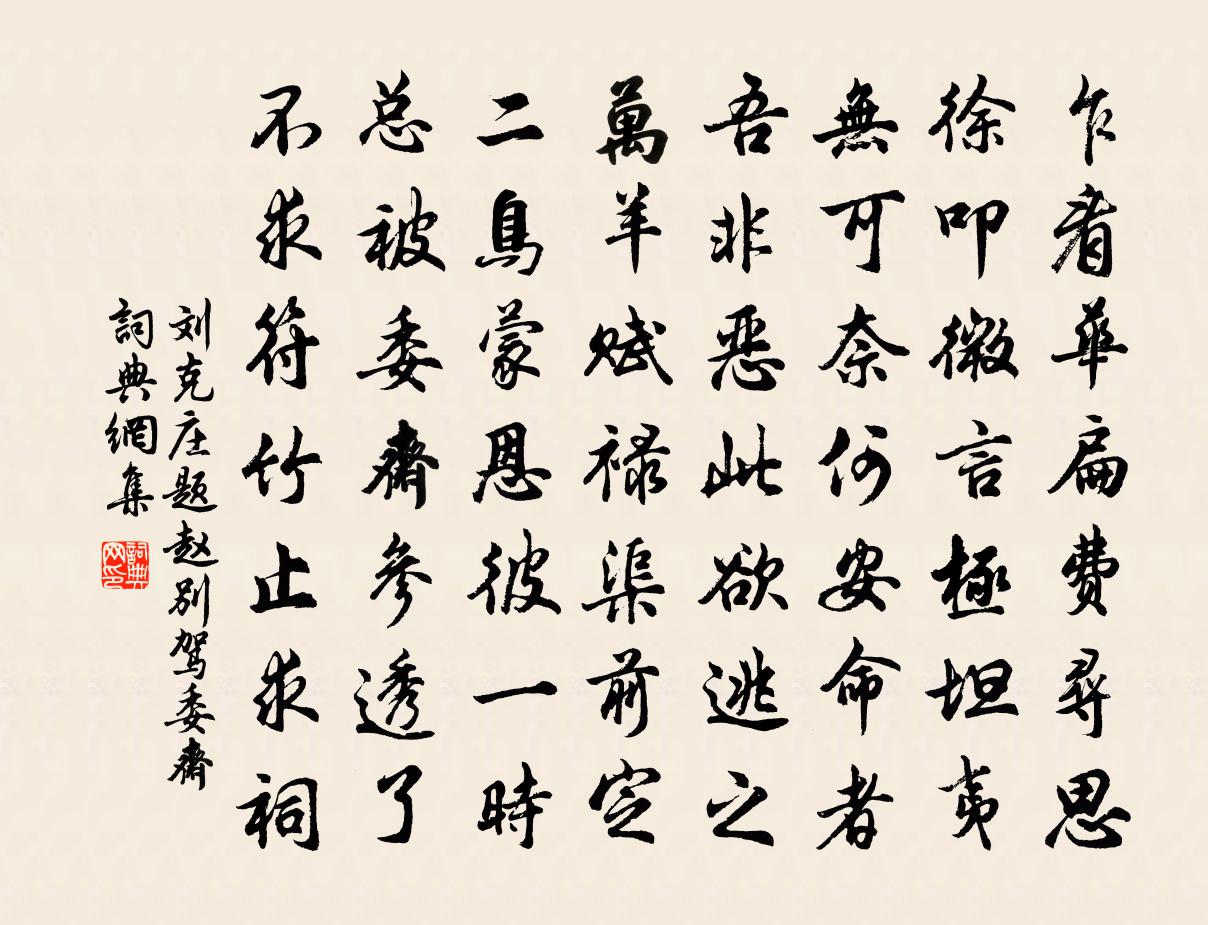 乍看華扁費尋思
徐叩微言極坦夷
無可奈何安命者
吾非惡此欲逃之
萬羊賦禄渠前定
二鳥蒙恩彼一時
总被委齋參透了
不求符竹止求祠
刘克庄题赵别驾委齋
詞典網集
詞典网印